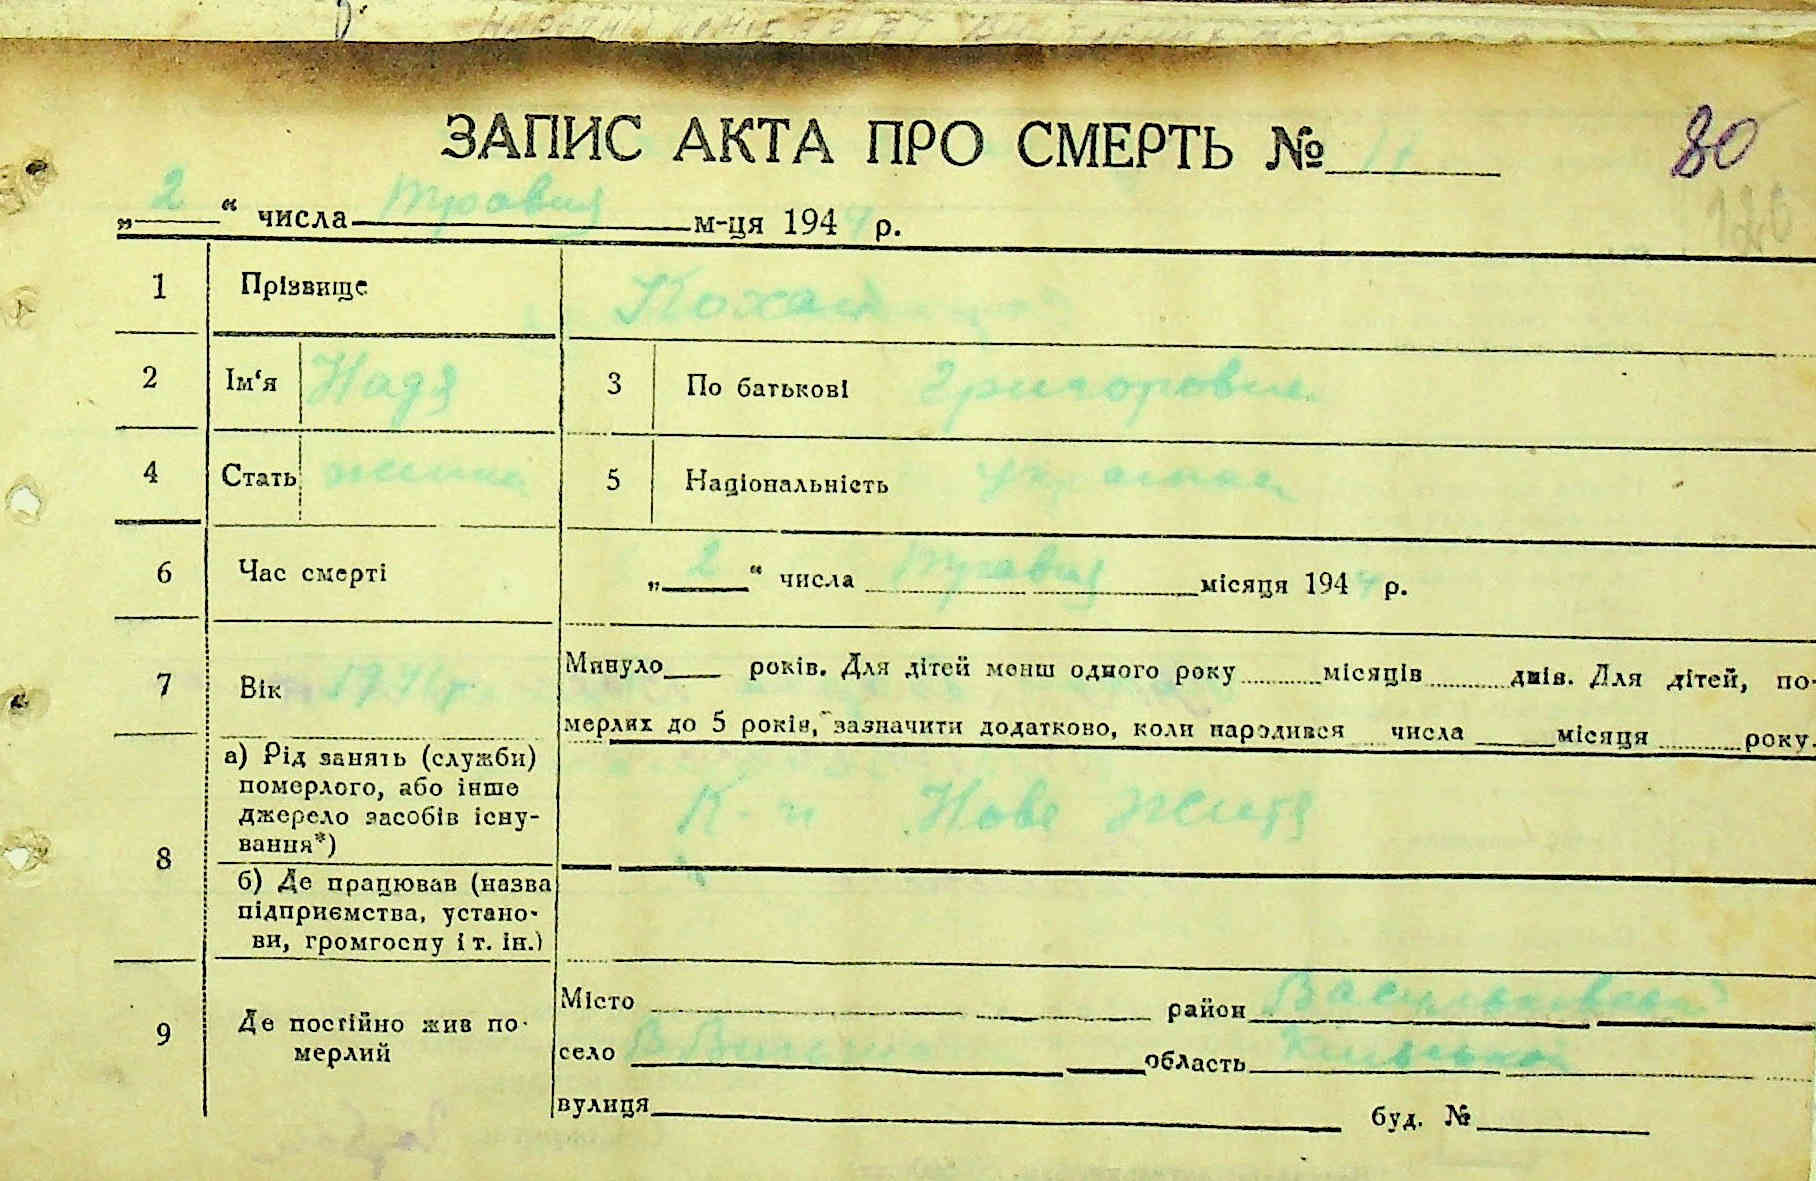 ЗАПИС АКТА ПРО СМЕРТЬ №
80
120
„ 2 “ числа травня м-ця 194 4 р.
1 Прізвище
2 Ім‘я Надя 3 По батькові Григоровна
4 Стать жіноча 5 Національність українка
6 Час смерті „ 2 “ числа травня місяця 194 4 р.
7 Вік Минуло років. Для дітей менш одного року місяців днів. Для дітей, по-
мерлих до 5 років, зазначити додатково, коли народився числа місяця року.
8 а) Рід занять (служби)
померлого, або інше
джерело засобів існу-
вання*)
К-п Нове життя
б) Де працював (назва
підприємства, устано-
ви, громгоспу і т. ін.)
9 Де постійно жив по-
мерлий
Місто район Васильківський
село область Київської
вулиця буд. №